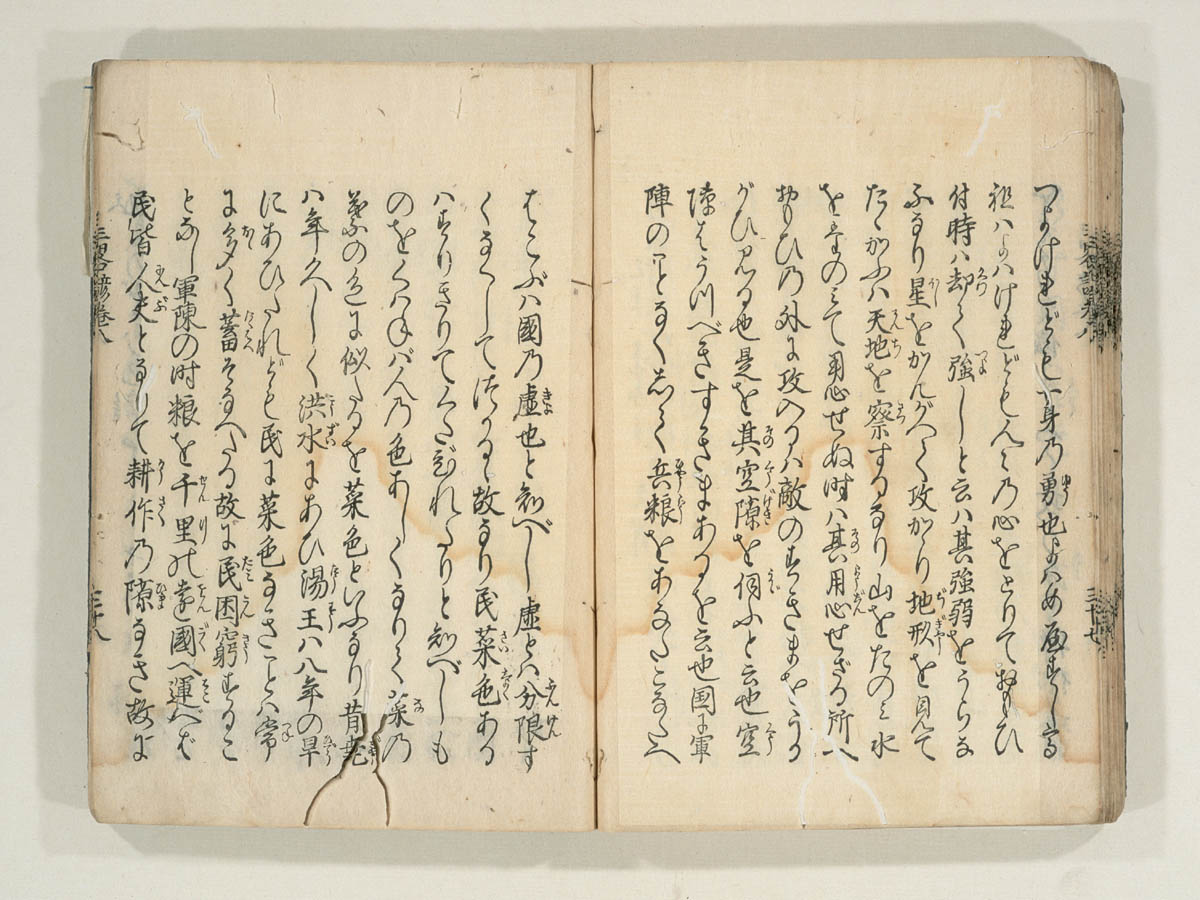 つよけれども一身の勇也よハめ
祖ハよハけれども人々の心をとりておもひ
付時ハ却て強しと云ハ其強弱をうらな
ふなり星をかんがへて攻かり地形を見て
たゝかふハ天地を察するなり山をたのミ水
をたのミて用心せぬ時ハ其用心せざる所へ
おもひの外に攻入るハ敵のすきまをうか
がひ見る也是を其空隙を伺ふと云也空
隙とハうつべきすきまあるを云也国に軍
陣のことなくして兵粮をあなたこなたへ
はこぶハ國乃虚也と知べし虚とハ分限す
くなくして
つかるゝ故なり民菜色ある
ハすりきりてくたびれたりと知べしも
のをくハねバ人の色あしくなりて菜乃
葉の色に似たるを菜色といふなり昔堯
ハ九年久しく洪水にあひ湯王ハ八年の旱
にあひたれども民に菜色なきことハ常
に多く蓄そなへたる故に民困窮すること
となし軍陳の时粮を千里の遠國へ運べば
民皆人夫となりて耕作乃隙なき故に
三略諺巻八
三十七
三十八